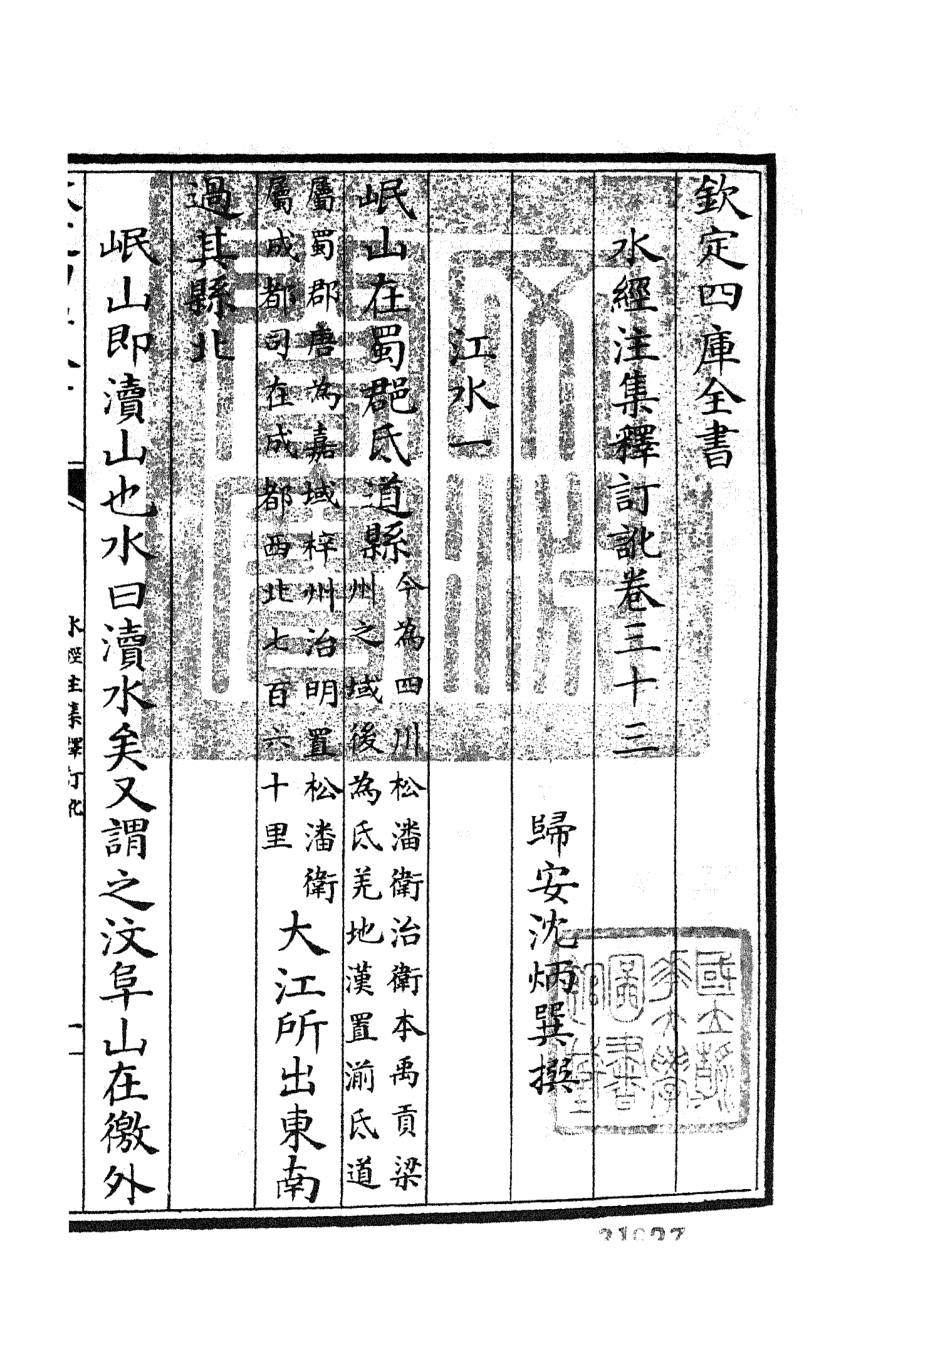 欽定四庫全書
水經注集釋訂訛卷三十三
歸安沈炳巽撰
江水一
岷山在蜀郡氐道縣
今為四川松潘衛治衛本禹貢梁
州之域後為氐羌地漢置湔氐道
屬蜀郡唐為嘉域梓州治明置松潘衛
屬成都司在成都西北七百六十里
大江所出東南
過其縣北
岷山即瀆山也水曰瀆水矣又謂之汶阜山在徼外
水經注集釋訂訛
一
文淵閣寶